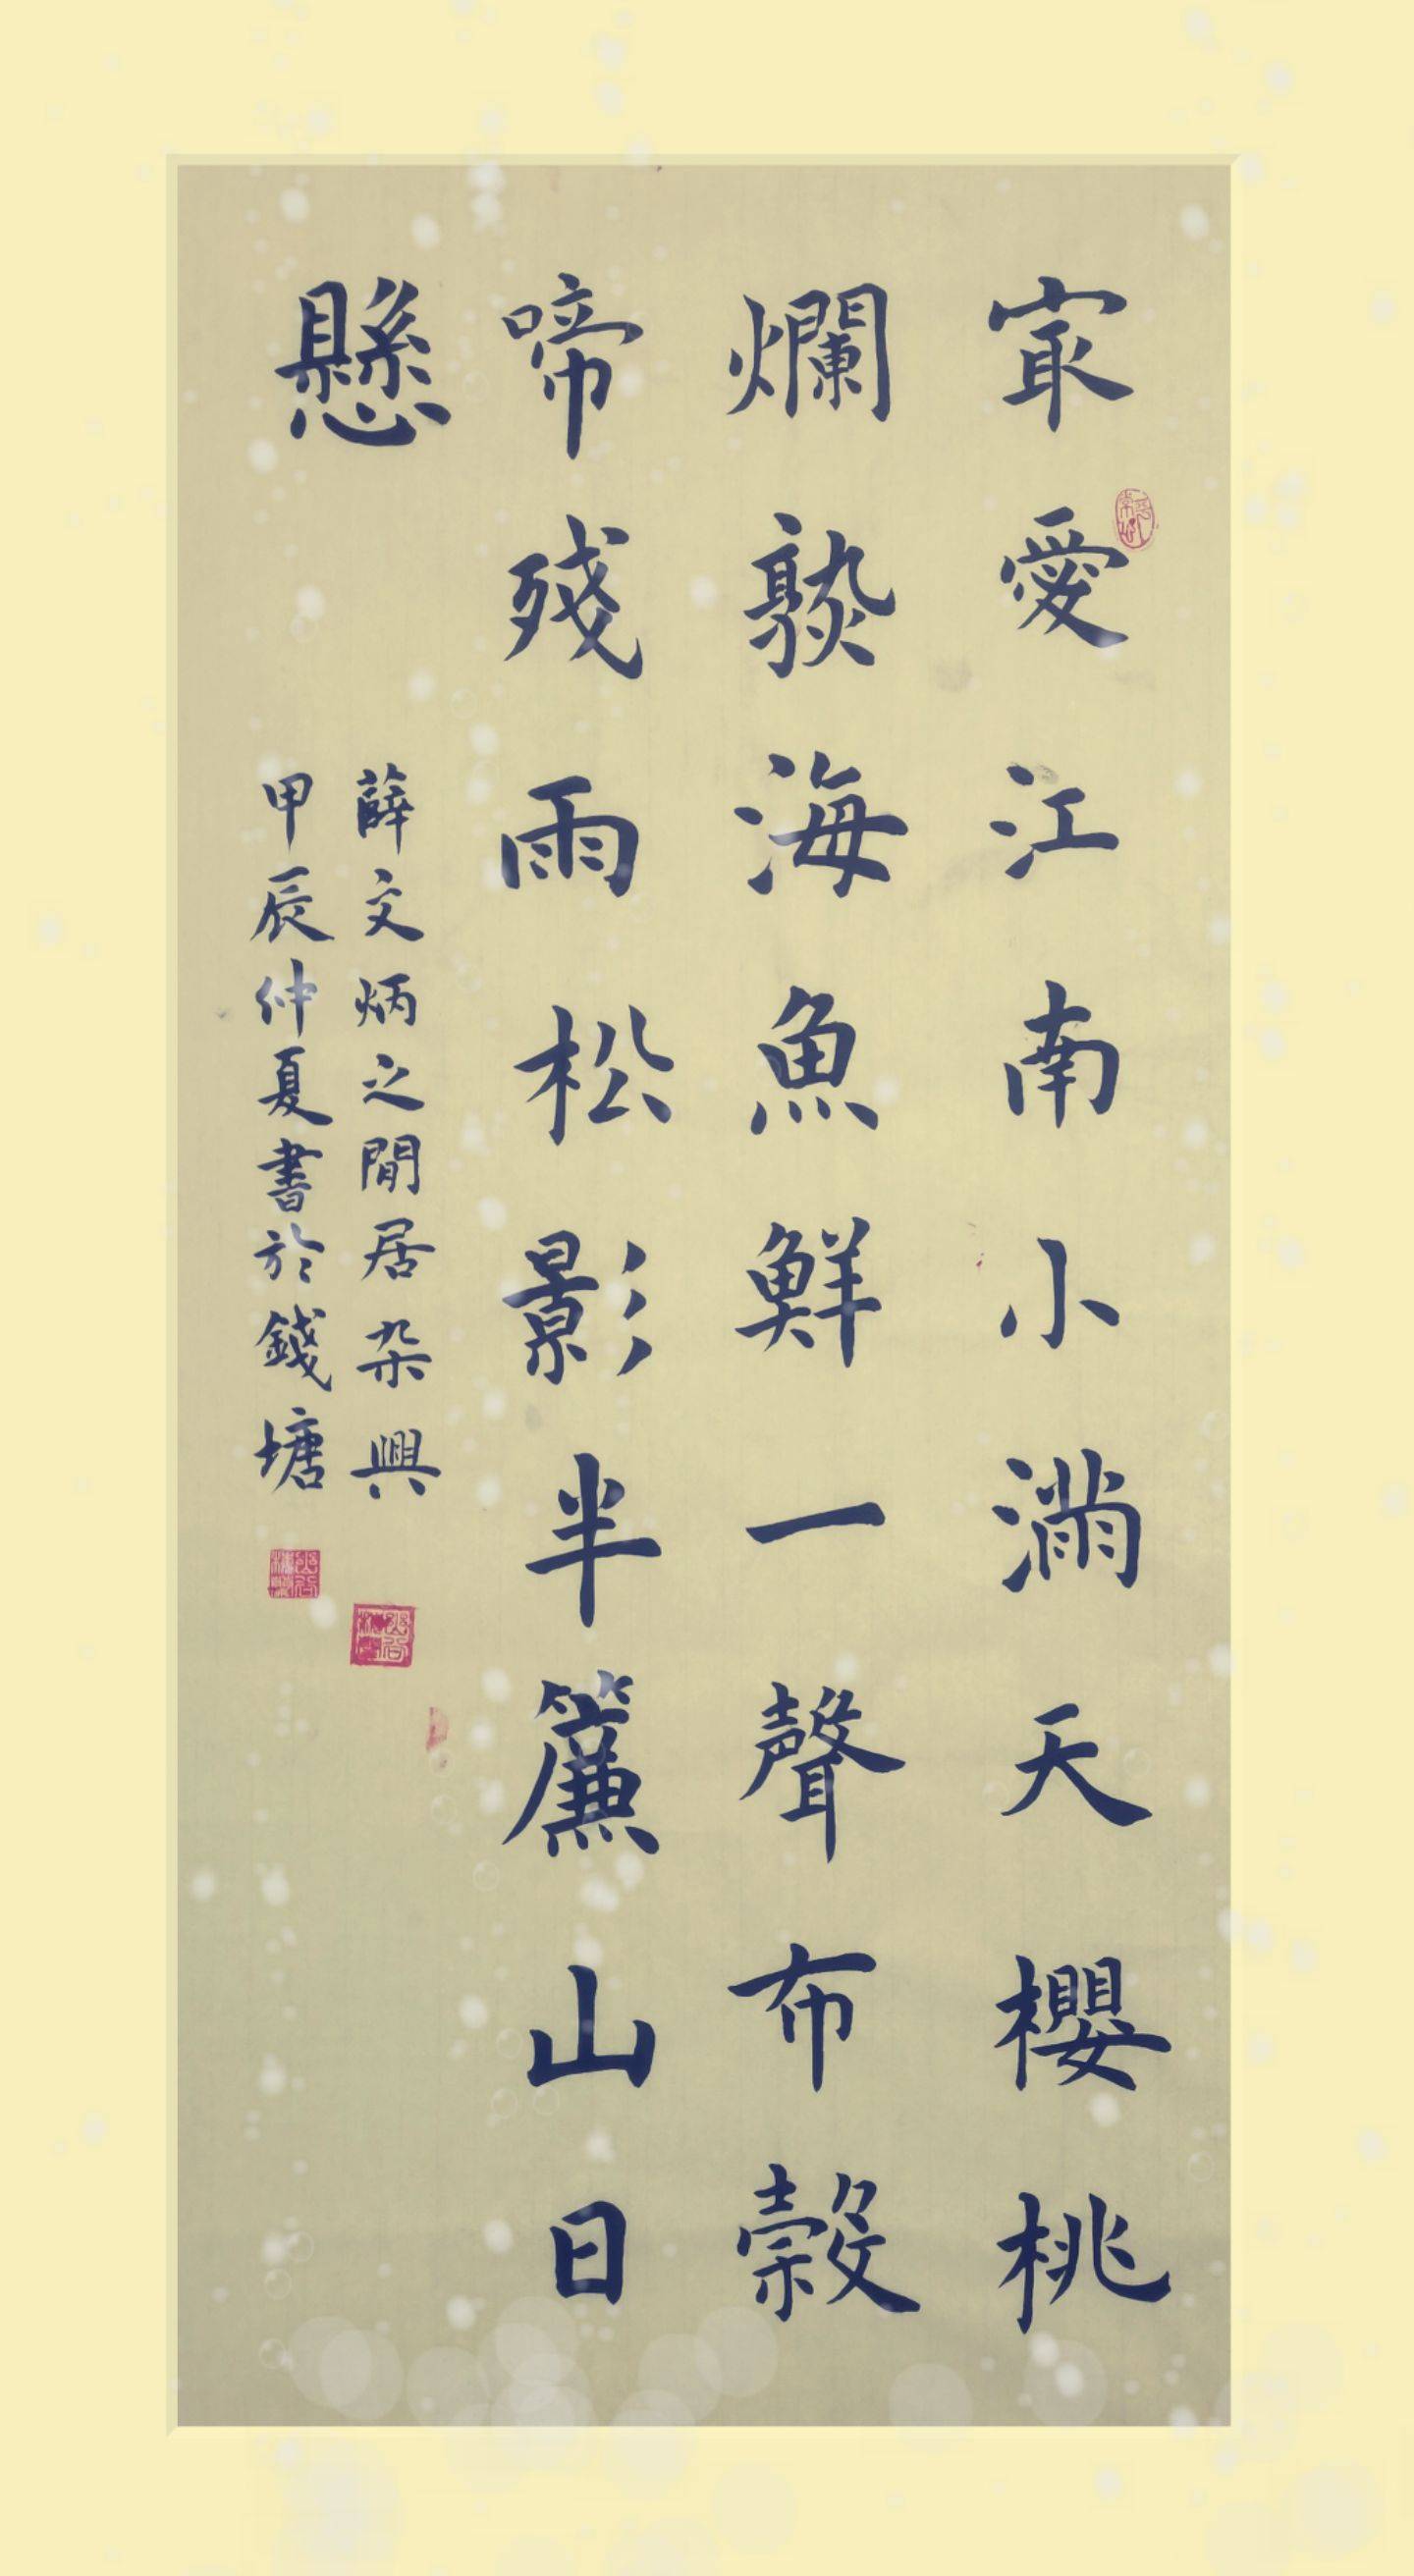 㝡愛江南小滿天櫻桃
爛熟海魚鮮一聲布穀
啼殘雨松影半簾山日
懸
薛文炳之閒居杂興
甲辰仲夏書於錢塘